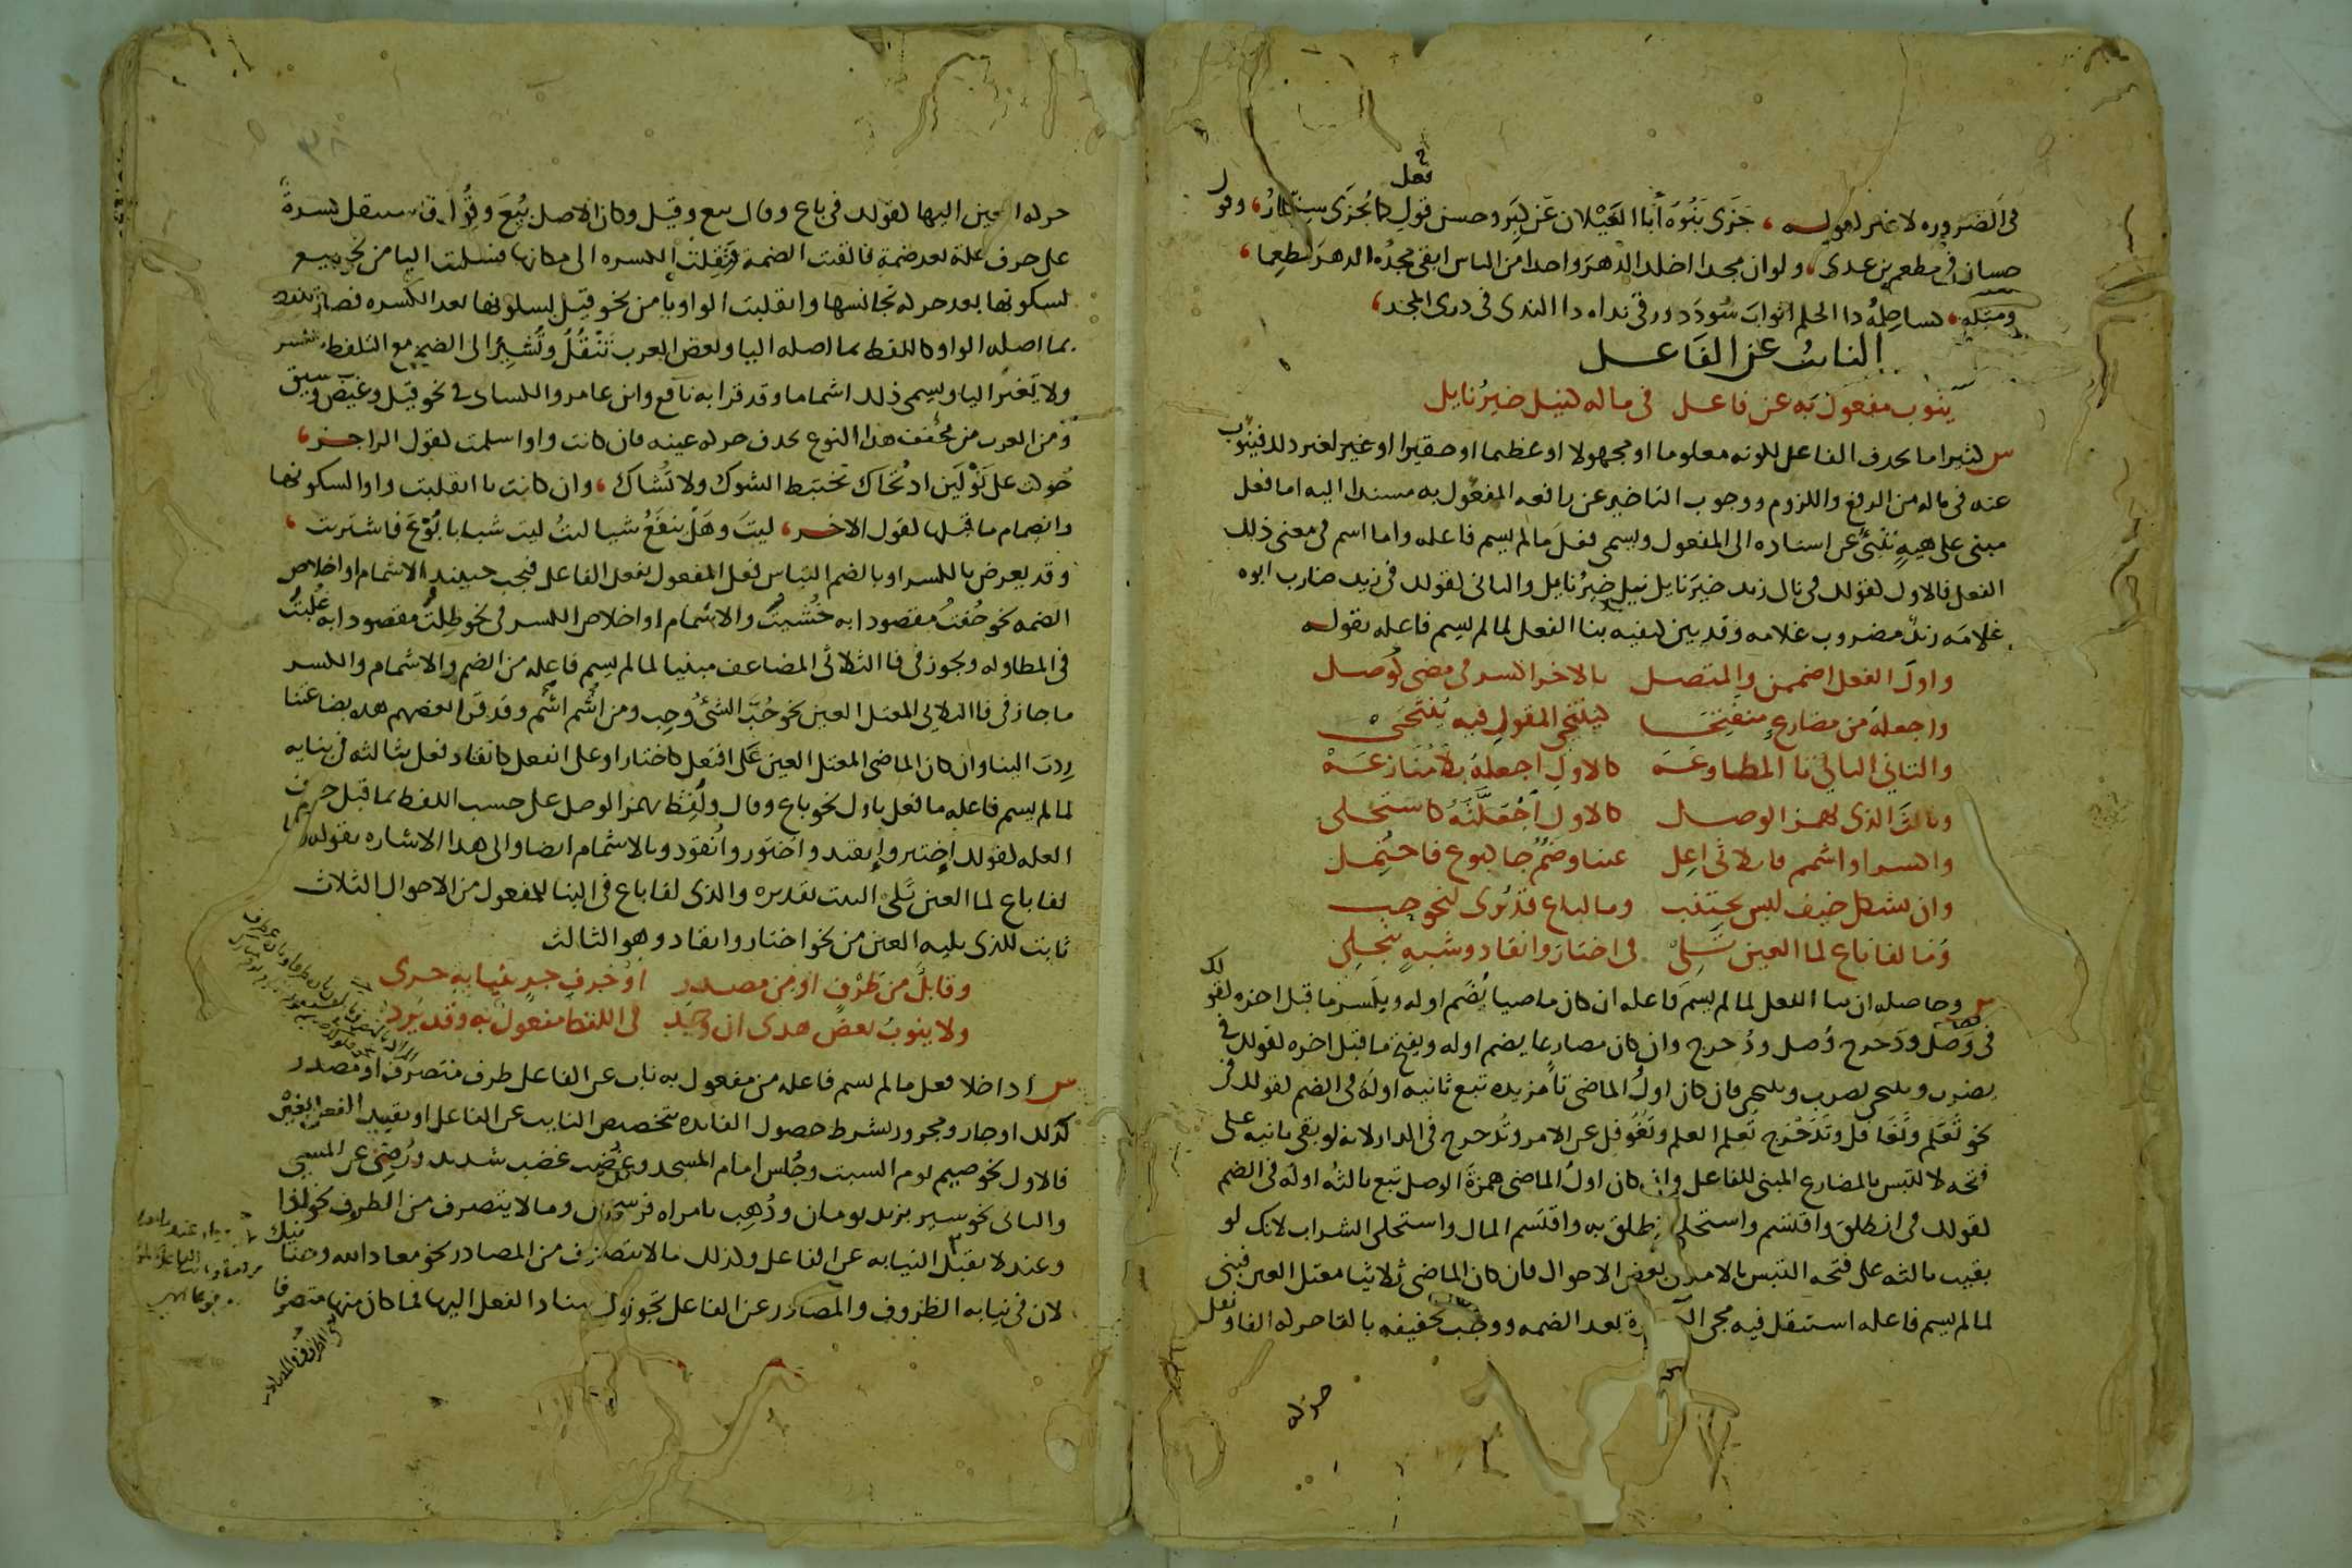 في الضروره لا غير لقوله، جَزَى بَنُوه أبا الغَيْلان عن كِبَر وحسن فعل كما يُجزَى سِنِمّارُ، وقول
حسان في مطعم بن عدى، ولو ان مجدا اخلد الدهرَ واحدا من الناس ابقى مجدُه الدهرَ مطعِما،
ومثله، كسا حِلمُه ذا الحلم اثوابَ سُودَد ورقى نداه ذا الندى في ذرى المجد،
النائب عن الفاعل
ينوب مفعول به عن فاعل في ما له كنيل خيرُ نايل
س كثيرا ما يحذف الفاعل لكونه معلوما او مجهولا او عظيما او حقيرا او غير ذلك فينوب
عنه في ماله من الرفع واللزوم ووجوب التاخير عن رافعه المفعول به مسندا اليه اما فعل
مبنى على هيةٍ تُنبئ عن اسناده الى المفعول ويسمى فعلَ ما لم يسم فاعله واما اسم في معنى ذلك
الفعل فالاول كقولك في نال زيد خيرَ نايل نيل خيرُ نايل والثاني كقولك في زيد ضارب ابوه
غلامَه زيدٌ مضروب غلامه وقد بين كيفيه بنا الفعل لما لم يسم فاعله بقوله
واولَ الفعل اضممن والمتصل بالاخر اكسر في مضى كوُصل
واجعلهُ من مضارعٍ منفتِحَا كينتحى المقولِ فيه يُنتَحَىْ
والثاني التالي تا المطاوعَه كالاولِ اجعلهُ بلا مُنازعَهْ
وثالثَ الذي بهمز الوصل كالاول اجْعَلَنَّهُ كاستُحلى
واكسر او اشمم فا ثلاثي اعِل عينا وضمٌ جا كبوع فاحتُمِل
وان بشكل خيف لبس يجتنب وما لباع قد يُرى لنحو حب
وَما لفا باع لما العين تَلِىْ في اختارَ وانقاد وشبهٍ ينجلِى
س وحاصله ان بنا الفعل لما لم يسمَّ فاعله ان كان ماضيا يُضَم اوله ويكسر ما قبل اخره كقولك
في وَصَلَ ودَحرج وُصل ودُحرج وان كان مضارعا يضم اوله ويفتح ما قبل اخره كقولك في
يضرب وينتحى يُضرب ويُنتحى فان كان اولُ الماضى تاً مزيده تبع ثانيه اولهُ في الضم كقولك في
نحو تَعَلَّم وتَغَافل وتَدَحْرَج تُعلم العلم وتُغُوفل عن الامر وتُدحرج في الدار لانه لو بقى ثانيه على
فتحه لالتبس بالمضارع المبنى للفاعل وان كان اولُ الماضى همزةَ الوصل تبع ثالثُه اولَه في الضم
كقولك في انطلقَ واقتسَم واستحلى انطلق به واقتُسم المال واستحلى الشراب لانك لو
بقيت ثالثه على فتحه التبس بالامر في بعض الاحوال فان كان الماضى ثلاثيا معتل العين فبنى
لما لم يسم فاعله استثقل فيه مجى الكسرة بعد الضمه ووجب تخفيفه بالقا حركه الفا ونقل
حركه
حركه العين اليها كقولك في باع وقال بيع وقيل وكان الاصل بُيعَ وقُوِل فاستثقل كسرةٌ
على حرف علة بعد ضمة فالقيت الضمة ونُقِلتْ الكسره الى مكانها فسلمت اليا من نحو بيع
لسكونها بعد حركه تجانسها وانقلبت الواو يا من نحو قيل لسكونها بعد الكسره فصار اللفظ
بما اصله الواو كاللفظ بما اصله اليا وبعض العرب تَنقُلُ وتُشيرُ الى الضم مع التلفظ بالكسر
ولا يُغير اليا ويسمى ذلك اشماما وقد قرا به نافع وابن عامر والكساى في نحو قيل وغيض وسيق
ومن العرب من يخفف هذا النوع بحذف حركه عينه فان كانت واوا سلمت كقول الراجز،
حُوكت على نَوْلَين اذ تُحاك تختبط الشوك ولا تُشاك، وان كانت يا انقلبت واوا لسكونها
وانضمام ما قبلها كقول الاخر، ليتَ وهَل ينفَعُ شيا ليتُ ليت شبابا بُوعَ فاشتريت،
وقد يعرض بالكسر او بالضم التباس فعل المفعول بفعل الفاعل فيجب حينيذ الاشمام او اخلاص
الضمه نحو خُفتُ مقصودا به خُشيتُ والاشمام او اخلاص الكسر في نحو طِلتُ مقصودا به غُلِبتُ
في المطاوله ويجوز في فا الثلاثي المضاعف مبنيا لما لم يسم فاعله من الضم والاشمام والكسر
ما جاز في فا الثلاثي المعتل العين نحو حُبَّ الشئُ وحِب ومن اشم اشم وقد قرا بعضهم هذه بضاعتنا
رِدت الينا وان كان الماضى المعتل العين على افتعل كاختار او على انفعل كانقاد فعل بثالثه في بنايه
لما لم يسم فاعله ما فعل باول نحو باع وقال ولُفِظَ بهمز الوصل على حسب اللفظ بما قبل حرف
العله كقولك اختير وانقيد واختور وانقود وبالاشمام ايضا والى هذا الاشاره بقوله وما
لفا باع لما العين تَلى البيت تقديره والذى لفا باع في البنا للمفعول من الاحوال الثلاث
ثابت للذى يليه العين من نحو اختار وانقاد وهو الثالث
وقابلٌ من ظرفٍ او من مصدر او حرفِ جرٍ بنيابهٍ حرى
ولا ينوبُ بعضُ هذى ان وُجِد في اللفظ مفعولٌ به وقد يَرِد
س اذا خلا فعل ما لم يسم فاعله من مفعول به ناب عن الفاعل ظرف متصرف او مصدر
كذلك او جار ومجرور بشرط حصول الفايده بتخصيص النايب عن الفاعل او تقييد الفعل بغيره
فالاول نحو صيم يوم السبت وجُلس امام المسجد وغُضب غضب شديد ورُضى عن المسى
والثاني نحو سير بزيد يومان وذُهِب بامراه فرسخان وما لا يتصرف من الظروف نحو اذا
وعند لا يقبل النيابه عن الفاعل وكذلك ما لا يتصرف من المصادر نحو معاذ الله وحنانيك
لان في نيابه الظروف والمصادر عن الفاعل تجوزا باسناد الفعل اليها فما كان منها متصرفا